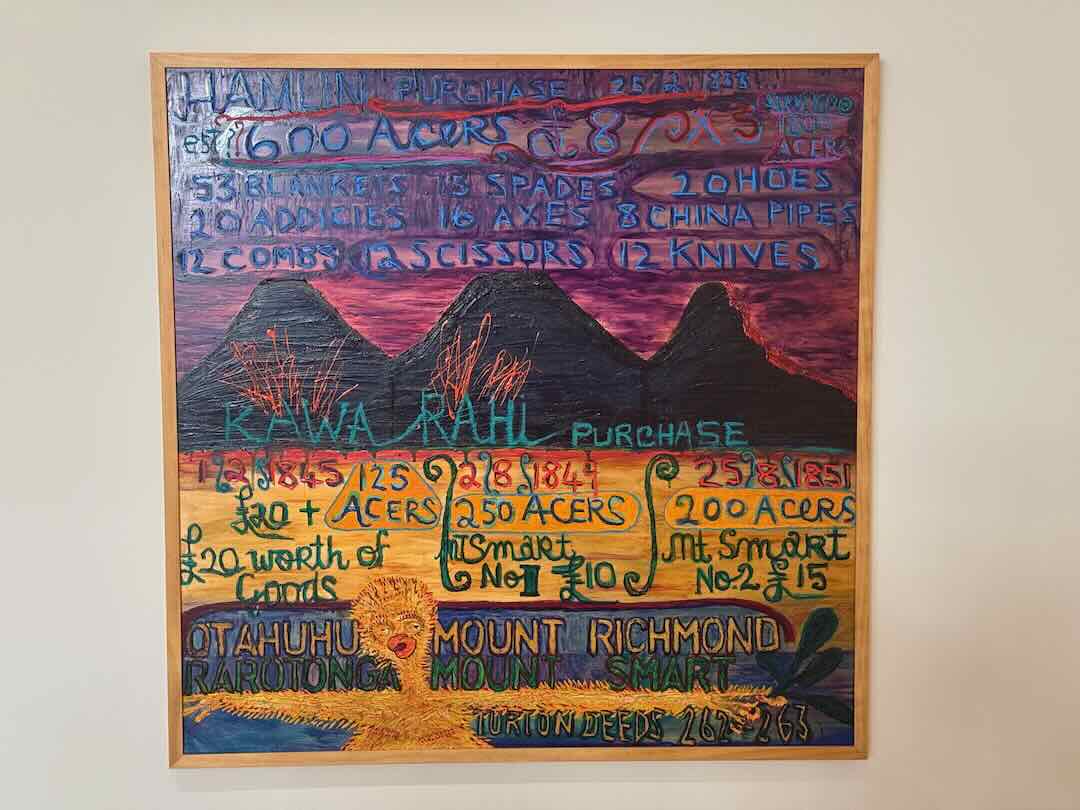 HAMLIN PURCHASE 25 2 1838
est?? 600 ACERS £8 PX 3
ACERS
53 BLANKETS 15 SPADES 20 HOES
20 ADDICIES 16 AXES 8 CHINA PIPES
12 COMBS 12 SCISSORS 12 KNIVES
KAWA RAHI PURCHASE
1845 125 ACERS
£20 +
£20 worth of Goods
250 ACERS
Mt Smart
No 1 £10
25 8 1851
200 ACERS
Mt Smart
No.2 £15
OTAHUHU MOUNT RICHMOND
RAROTONGA MOUNT SMART
TURTON DEEDS 262-263